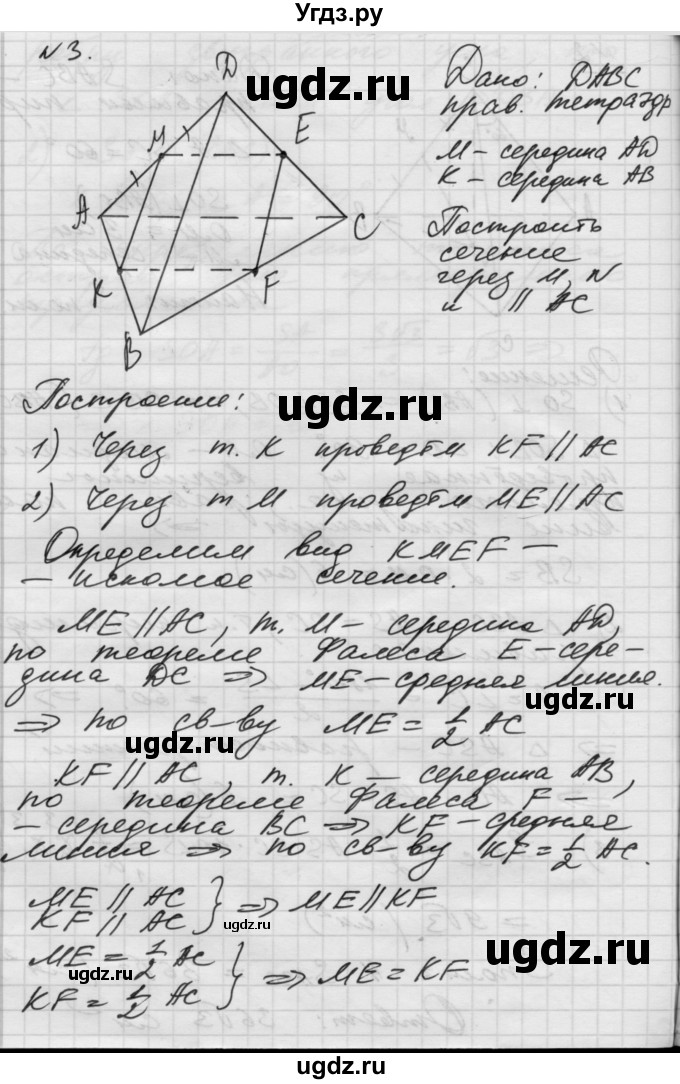 Угдз.ру
N 3.
D
Дано: DABC
прав. тетраэдр
M – середина AD
K – середина AB
Построить
сечение
через M, N
и || AC
M
E
A
C
K
F
B
Построение:
1) Через т. K проведём KF || AC
2) Через т M проведём ME || AC
Определим вид KMEF –
– искомое сечение.
ME || AC, т. M – середина AD,
по теореме Фалеса E – сере-
дина DC ⇒ ME – средняя линия.
⇒ по св-ву ME = 1/2 AC
KF || AC, т. K – середина AB,
по теореме Фалеса F –
– середина BC ⇒ KF – средняя
линия ⇒ по св-ву KF = 1/2 AC.
ME || AC
KF || AC } ⇒ ME || KF
ME = 1/2 AC
KF = 1/2 AC } ⇒ ME = KF
ugdz.ru
ugdz.ru
ugdz.ru
ugdz.ru
ugdz.ru
ugdz.ru
ugdz.ru
ugdz.ru
ugdz.ru
ugdz.ru
ugdz.ru
ugdz.ru